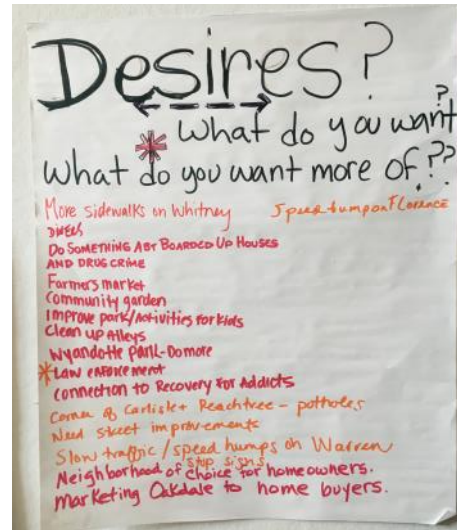 Desires?
* What do you want?
What do you want more of???
More sidewalks on Whitney
Speed bump on Florence
Do SOMETHING ABT BOARDED UP HOUSES
AND DRUG CRIME
Farmers market
Community garden
Improve park/Activities for kids
Clean up Alleys
Wyandotte Park - Do more
*Law enforcement
connection to Recovery for Addicts
Corner of Carlisle + Peachtree - potholes
Need street improvements
Slow traffic / speed humps on Warren
stop signs
Neighborhood of choice for homeowners.
Marketing Oakdale to home buyers.